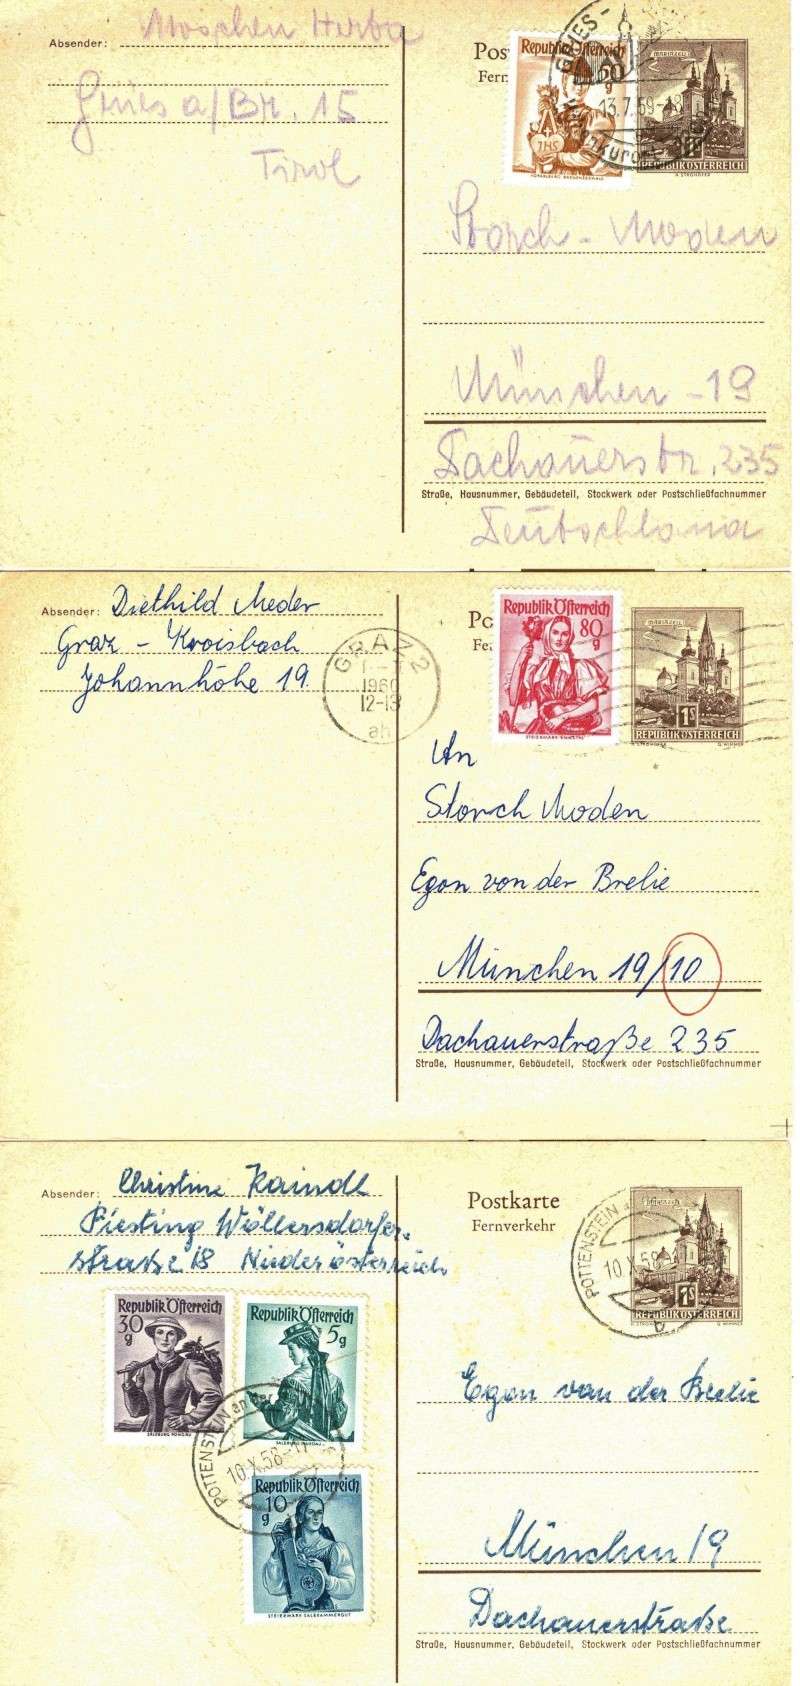 Absender: Moschen Herta
Gries a/Br. 15
Tirol
Republik Österreich
50
g
VORARLBERG BREGENZERWALD
MARIAZELL
REPUBLIK ÖSTERREICH
GRIES
13.7.59-18
Storch - Moden
München - 19
Dachauerstr. 235
Straße, Hausnummer, Gebäudeteil, Stockwerk oder Postschließfachnummer
Deutschland
Absender: Diethild Meder
Graz - Kroisbach
Johannhöhe 19
GRAZ 2
1960
12-13
ah
Republik Österreich
80
g
STEIERMARK ENNSTAL
MARIAZELL
1S
REPUBLIK ÖSTERREICH
An
Storch Moden
Egon von der Brelie
München 19/10
Dachauerstraße 235
Straße, Hausnummer, Gebäudeteil, Stockwerk oder Postschließfachnummer
Absender: Christine Kaindl
Piesting Wöllersdorfer-
straße 18 Niederösterreich
Postkarte
Fernverkehr
1S
REPUBLIK ÖSTERREICH
POTTENSTEIN
10.X.58
b
Republik Österreich
30
g
SALZBURG PONGAU
Republik Österreich
5
g
SALZBURG LUNGAU
POTTENSTEIN an der
10.X.58-17
Republik Österreich
10
g
STEIERMARK SALZKAMMERGUT
Egon von der Brelie
München 19
Dachauerstraße
Straße, Hausnummer, Gebäudeteil, Stockwerk oder Postschließfachnummer